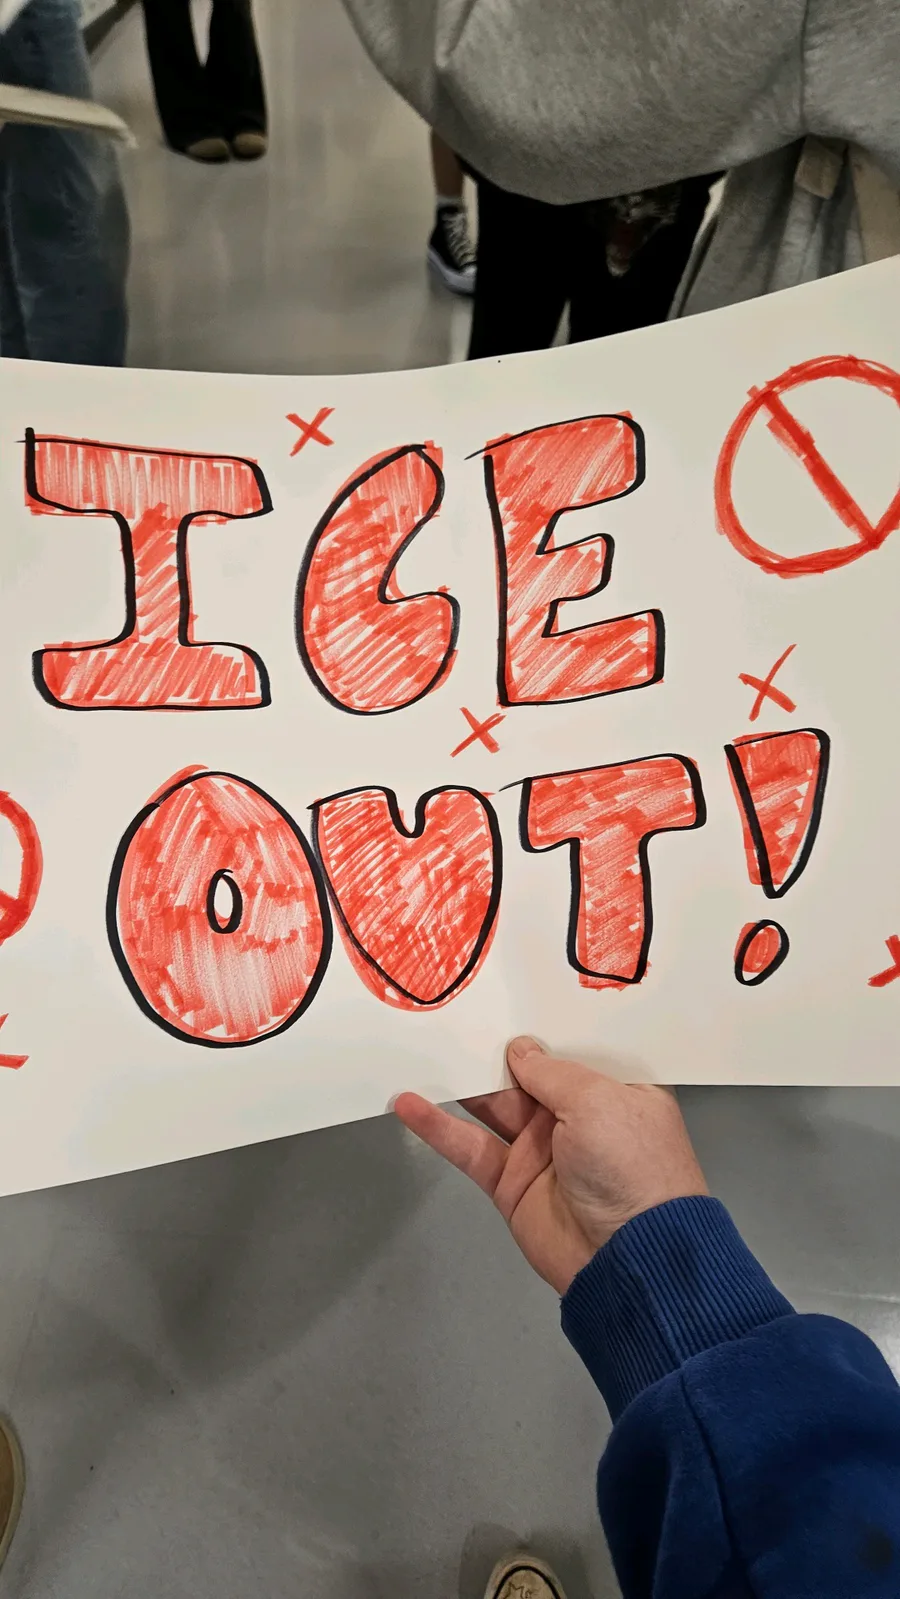 ICE
OUT!